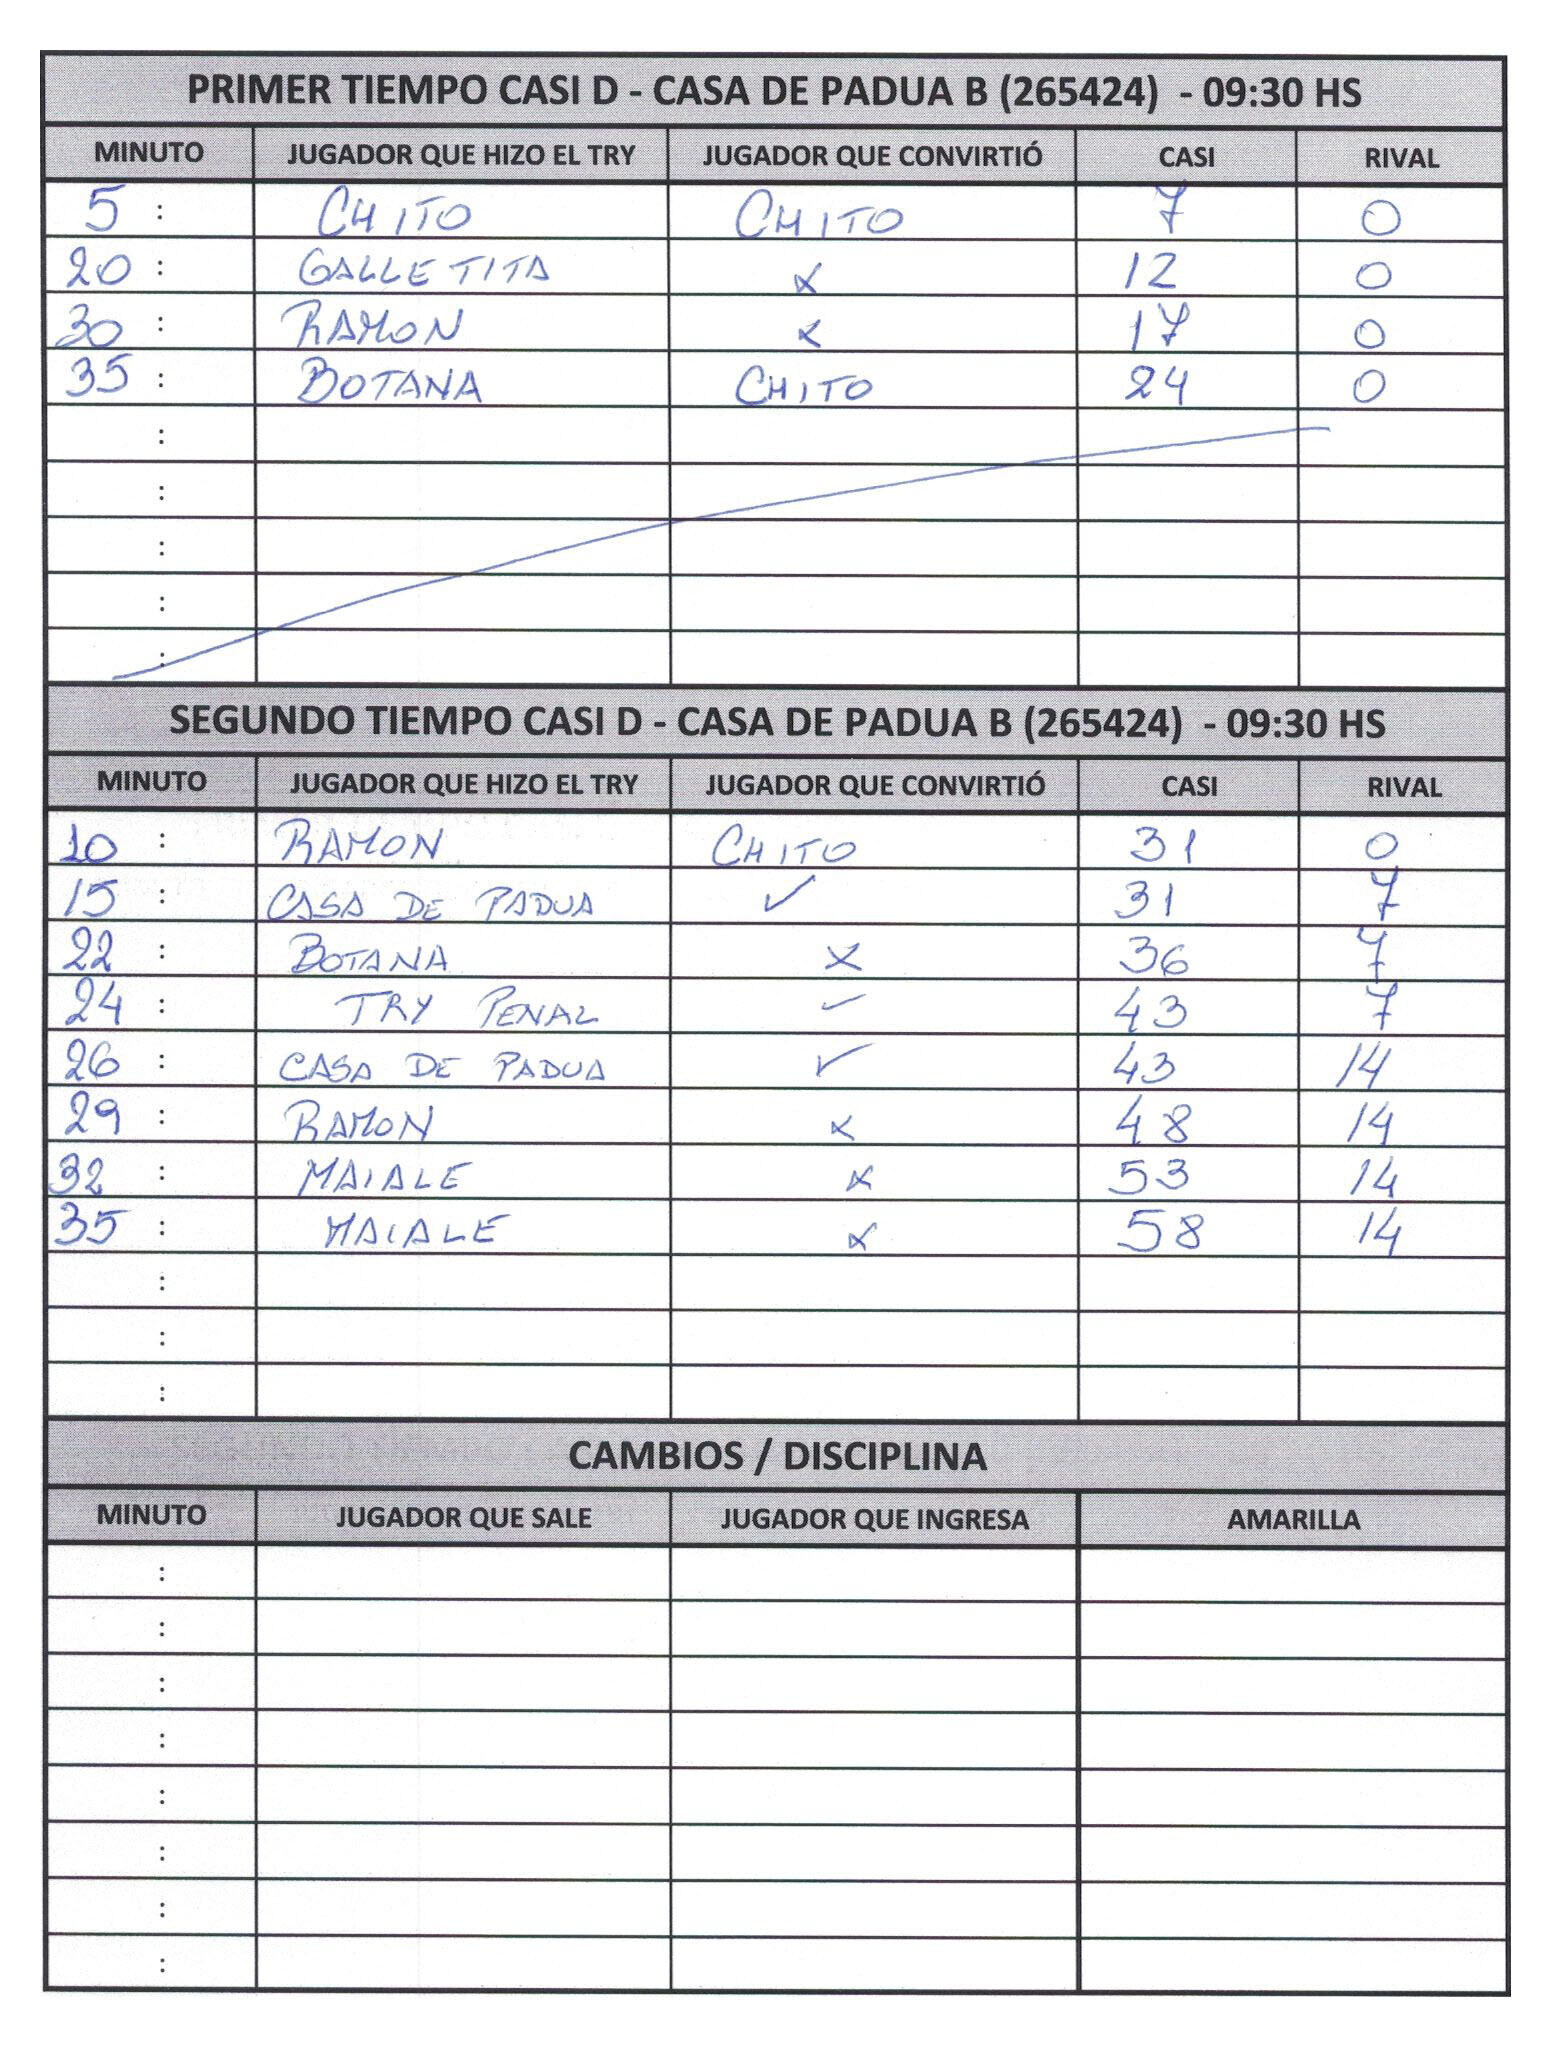 PRIMER TIEMPO CASI D - CASA DE PADUA B (265424) - 09:30 HS
MINUTO JUGADOR QUE HIZO EL TRY JUGADOR QUE CONVIRTIÓ CASI RIVAL
5 : CHITO CHITO 7 0
20 : GALLETITA X 12 0
30 : RAMON X 17 0
35 : BOTANA CHITO 24 0
:
:
:
:
:
SEGUNDO TIEMPO CASI D - CASA DE PADUA B (265424) - 09:30 HS
MINUTO JUGADOR QUE HIZO EL TRY JUGADOR QUE CONVIRTIÓ CASI RIVAL
10 : RAMON CHITO 31 0
15 : CASA DE PADUA ✓ 31 7
22 : BOTANA X 36 7
24 : TRY PENAL ✓ 43 7
26 : CASA DE PADUA ✓ 43 14
29 : RAMON X 48 14
32 : MAIALE X 53 14
35 : MAIALE X 58 14
:
:
:
CAMBIOS / DISCIPLINA
MINUTO JUGADOR QUE SALE JUGADOR QUE INGRESA AMARILLA
:
:
:
:
:
:
:
: